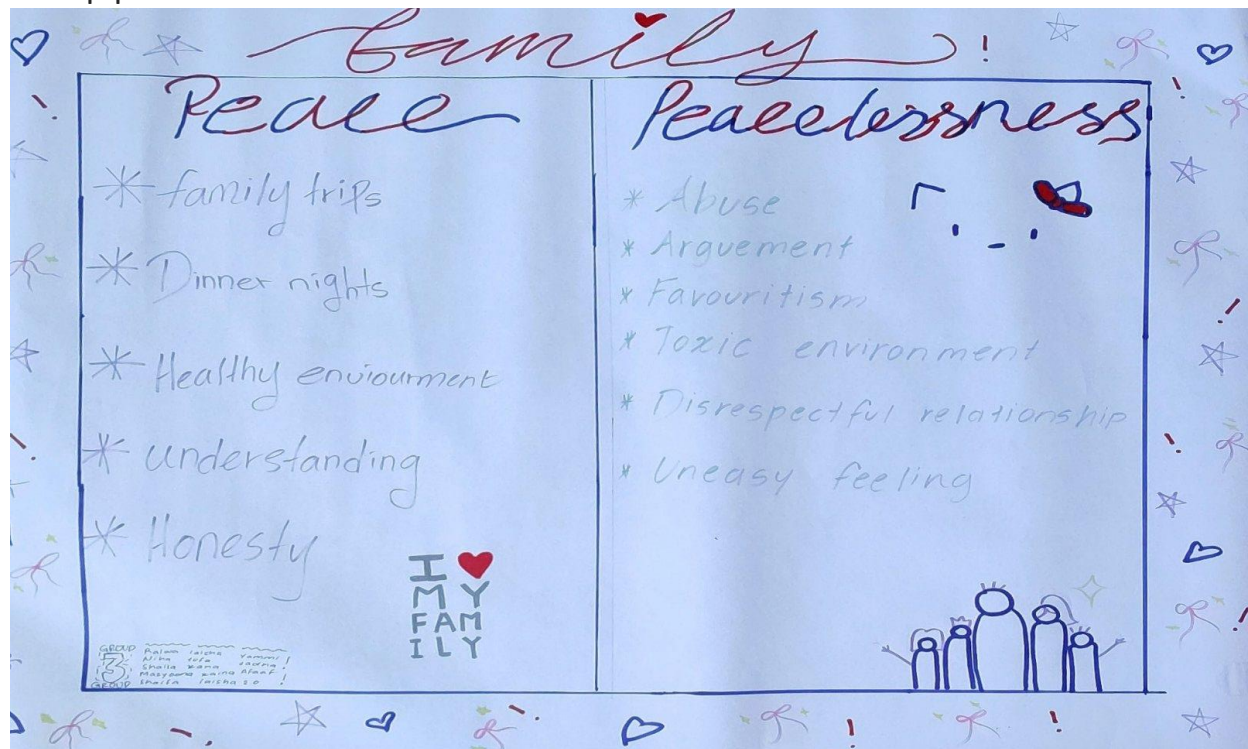 family!
Peace
* family trips
* Dinner nights
* Healthy enviourment
* understanding
* Honesty
I ♥
MY
FAM
ILY
GROUP
3
GROUP
Peacelessness
* Abuse
* Arguement
* Favouritism
* Toxic environment
* Disrespectful relationship
* Uneasy feeling